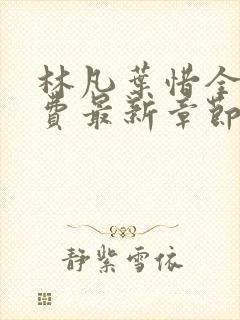 林凡葉惜全
費最新章節
靜紫雪依